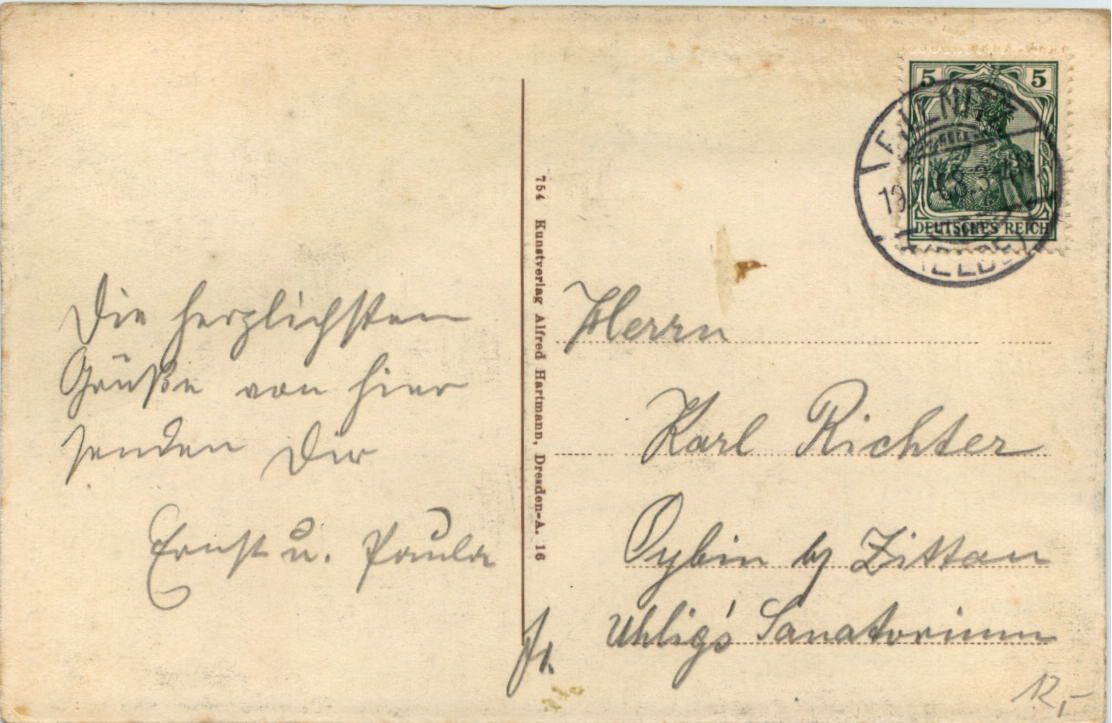 Die herzlichsten
Grüße von hier
senden Dir
Ernst u. Paula
754 Kunstverlag Alfred Hartmann, Dresden-A. 16
5 5
DEUTSCHES REICH
Herrn
Karl Richter
Oybin b/ Zittau
Uhlig's Sanatorium
Fr.
12,-